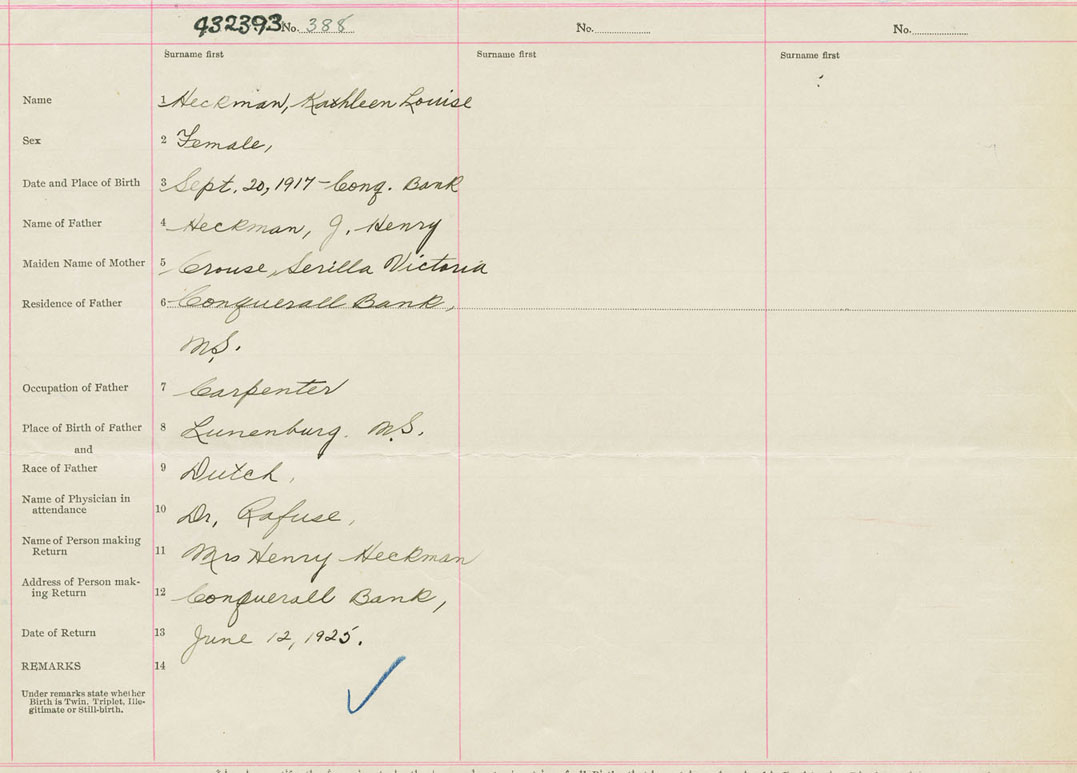 432393 No. 388 No. No.
Surname first Surname first Surname first
Name 1 Heckman, Kathleen Louise
Sex 2 Female,
Date and Place of Birth 3 Sept. 20, 1917 - Conq. Bank
Name of Father 4 Heckman, J. Henry
Maiden Name of Mother 5 Crouse, Serilla Victoria
Residence of Father 6 Conquerall Bank,
N.S.
Occupation of Father 7 Carpenter
Place of Birth of Father 8 Lunenburg. N.S.
and
Race of Father 9 Dutch,
Name of Physician in
attendance 10 Dr, Rafuse,
Name of Person making
Return 11 Mrs Henry Heckman
Address of Person mak-
ing Return 12 Conquerall Bank,
Date of Return 13 June 12, 1925.
REMARKS 14
Under remarks state whether
Birth is Twin, Triplet, Ille-
gitimate or Still-birth.